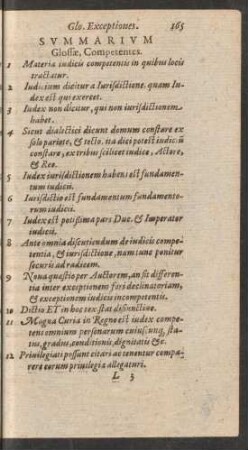 Glo. Exceptiones. 165
SVMMARIVM
Glossæ, Competentes.
1 Materia iudicis competentis in quibus locis
tractatur.
2 Iudicium dicitur a Iurisdictione, quam Iu-
dex est qui exercet.
3 Iudex non dicitur, qui non iurisdictionem
habet.
4 Sicut dialectici dicunt domum constare ex
solo pariete, & tecto, ita dici potest iudiciũ
constare, ex tribus scilicet iudice, Actore,
& Reo.
5 Iudex iurisdictionem habens est fundamen-
tum iudicii.
6 Iurisdictio est fundamentum fundamento-
rum iudicii.
7 Iudex est potissima pars Duc. & Imperator
iudicii.
8 Ante omnia discutiendum de iudicis compe-
tentia, & iurisdictione, nam tunc ponitur
securis ad radicem.
9 Noua quæstio per Auctorem, an sit differen-
tia inter exceptionem fori declinatoriam,
& exceptionem iudicis incompetentis.
10 Dictio ET in hoc tex. stat disiunctiue.
11 Magna Curia in Regno est iudex compe-
tens omnium personarum cuiuscunq; sta-
tus, gradus, conditionis, dignitatis &c.
12 Priuilegiati possunt citari ac tenentur compa-
rere eorum priuilegia allegaturi.
L 3